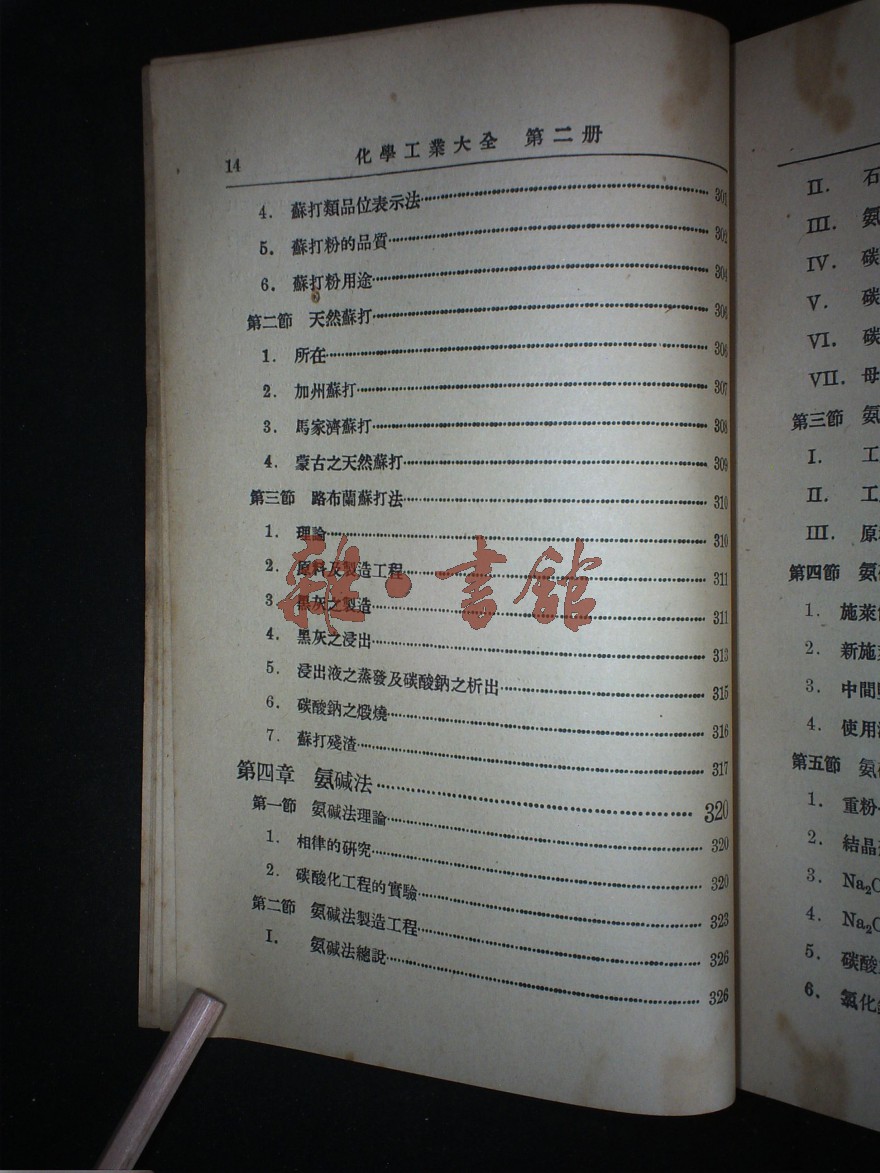 14 化學工業大全 第二册
4. 蘇打類品位表示法 301
5. 蘇打粉的品質 302
6. 蘇打粉用途 304
第二節 天然蘇打 306
1. 所在 306
2. 加州蘇打 307
3. 馬家濟蘇打 308
4. 蒙古之天然蘇打 309
第三節 路布蘭蘇打法 310
1. 理論 310
2. 原料及製造工程 311
3. 黑灰之製造 311
4. 黑灰之浸出 313
5. 浸出液之蒸發及碳酸鈉之析出 315
6. 碳酸鈉之煅燒 316
7. 蘇打殘渣 317
第四章 氨碱法 320
第一節 氨碱法理論 320
1. 相律的研究 320
2. 碳酸化工程的實驗 323
第二節 氨碱法製造工程 326
I. 氨碱法總說 326
雜·書館
II. 石
III. 氨
IV. 碳
V. 碳
VI. 碳
VII. 母
第三節 氨
I. 工
II. 工
III. 原
第四節 氨
1. 施萊
2. 新施
3. 中間
4. 使用
第五節 氨
1. 重粉
2. 結晶
3. Na₂C
4. Na₂C
5. 碳酸
6. 氯化